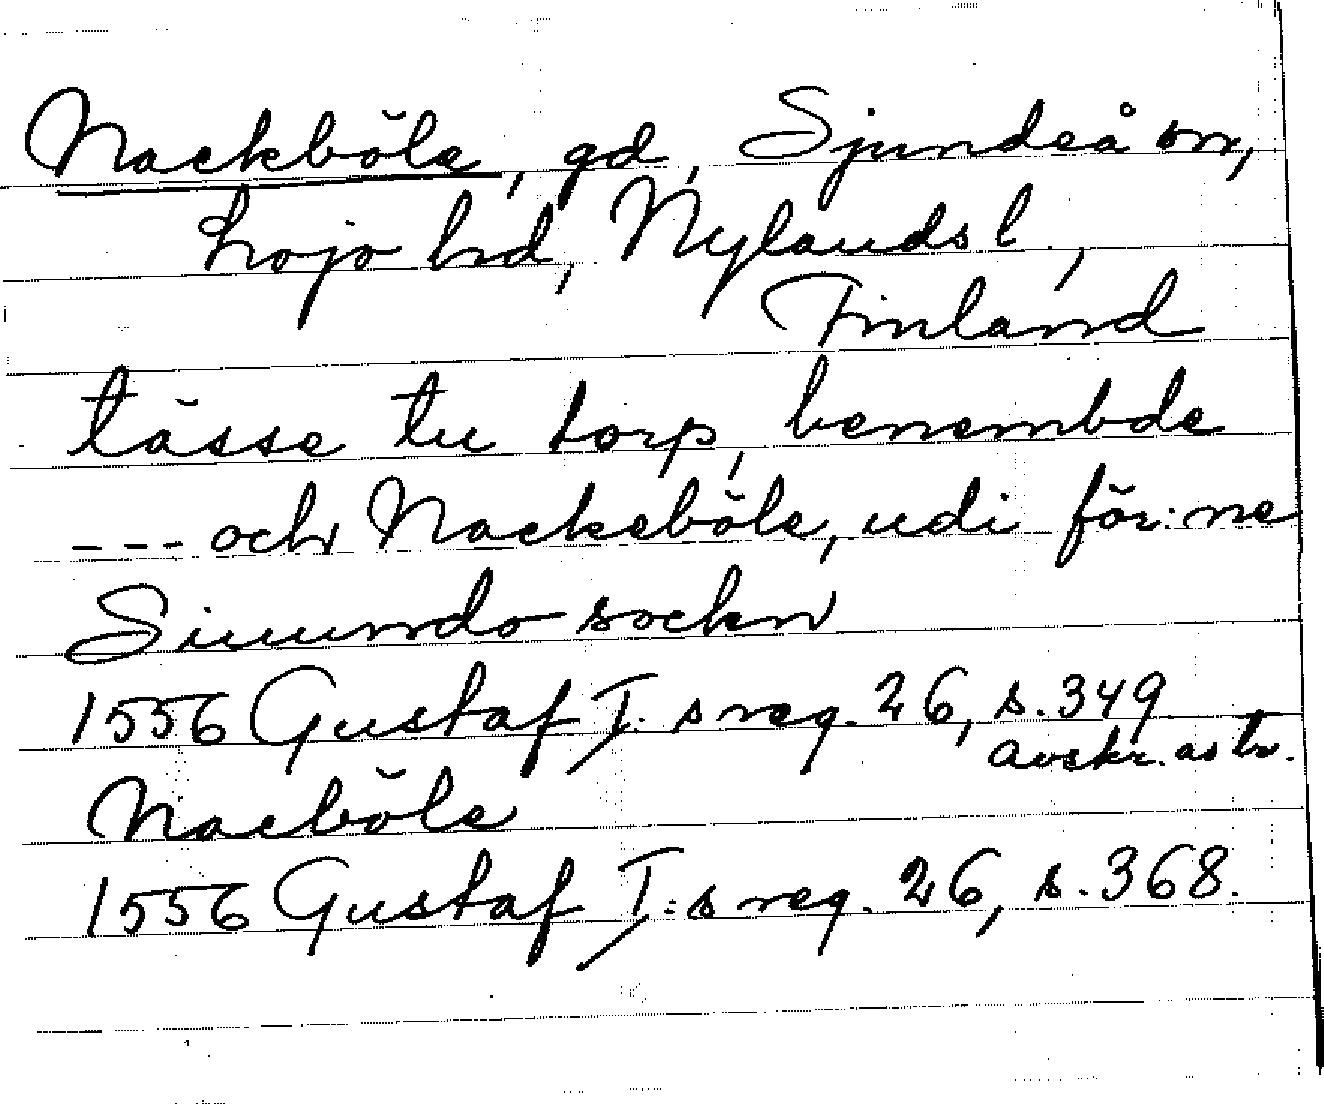 Nackböle, gd, Sjundeå sn,
Lojo hd, Nylands l.,
Finland
tässe tu torp, benembde
--- och Nackeböle, udi för:ne
Siuundo sockn
1556 Gustaf I:s reg. 26, s. 349
avskr. as tr.
Nacböle
1556 Gustaf I:s reg. 26, s. 368.